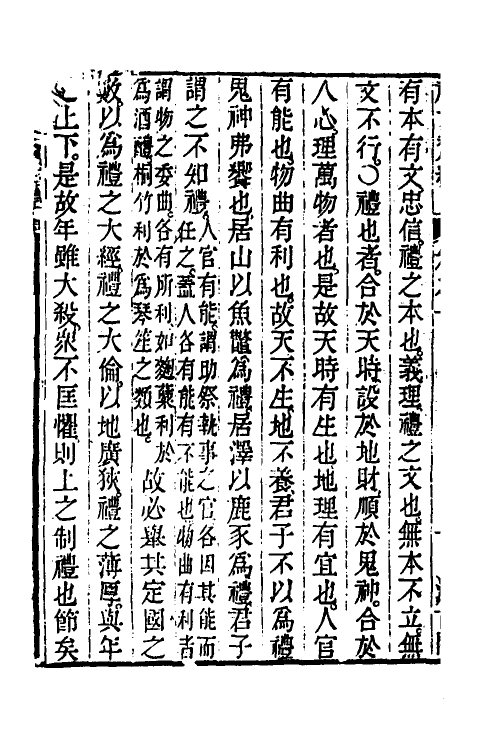 有本有文忠信禮之本也義理禮之文也無本不立無
文不行〇禮也者合於天時設於地財順於鬼神合於
人心理萬物者也是故天時有生也地理有宜也人官
有能也物曲有利也故天不生地不養君子不以為禮
鬼神弗饗也居山以魚鼈為禮居澤以鹿豕為禮君子
謂之不知禮
人官有能謂助祭執事之官各因其能而
任之蓋人各有能有不能也物曲有利者
謂物之委曲各有所利如麴蘗利於
為酒醴桐竹利於為琴笙之類也
故必舉其定國之
數以為禮之大經禮之大倫以地廣狹禮之薄厚與年
之上下是故年雖大殺衆不匡懼則上之制禮也節矣